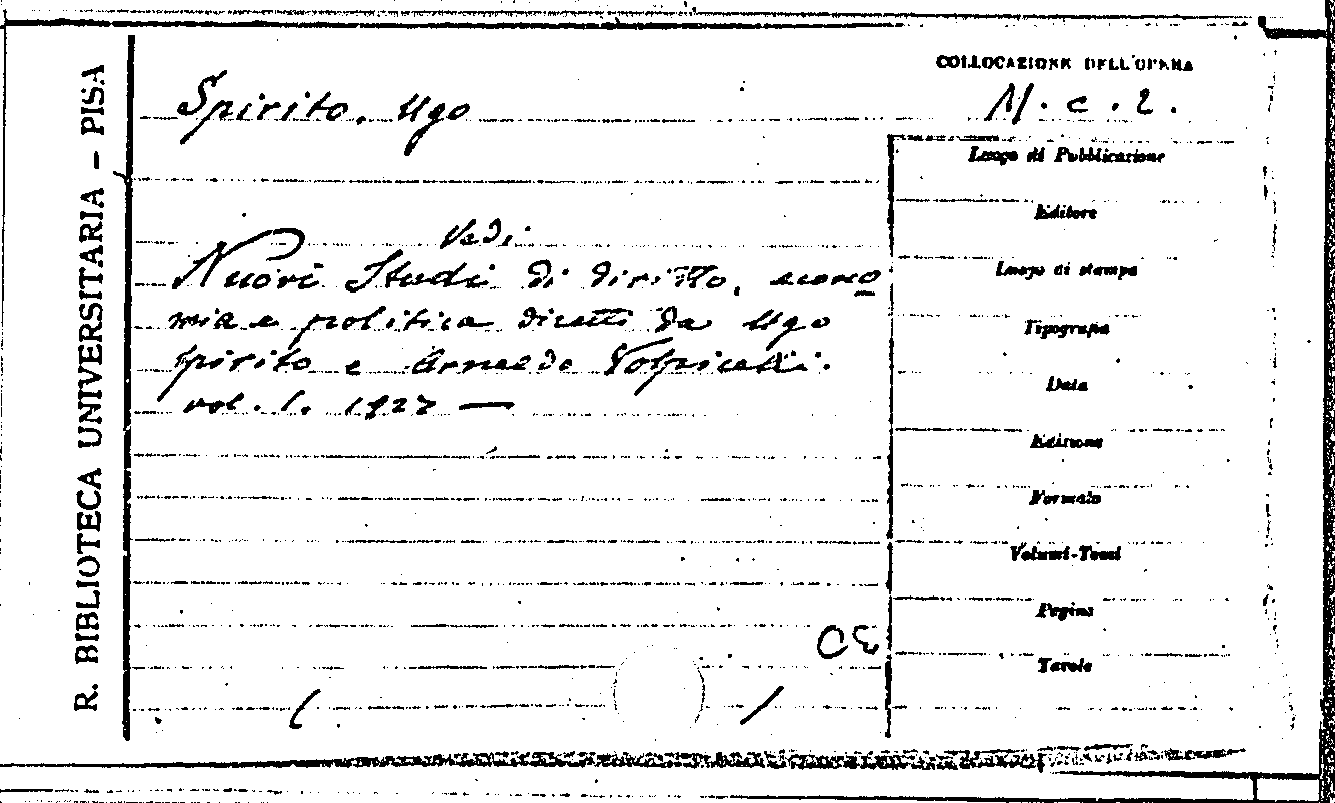 R. BIBLIOTECA UNIVERSITARIA – PISA
COLLOCAZIONE DELL'OPERA
M. c. 2.
Spirito, Ugo
Vedi
Nuovi Studi di diritto, econo
mia e politica diretti da Ugo
Spirito e Arnaldo Volpicelli.
vol. 1. 1927 —
Luogo di Pubblicazione
Editore
Luogo di stampa
Tipografia
Data
Edizione
Formato
Volumi-Tomi
Pagine
Tavole